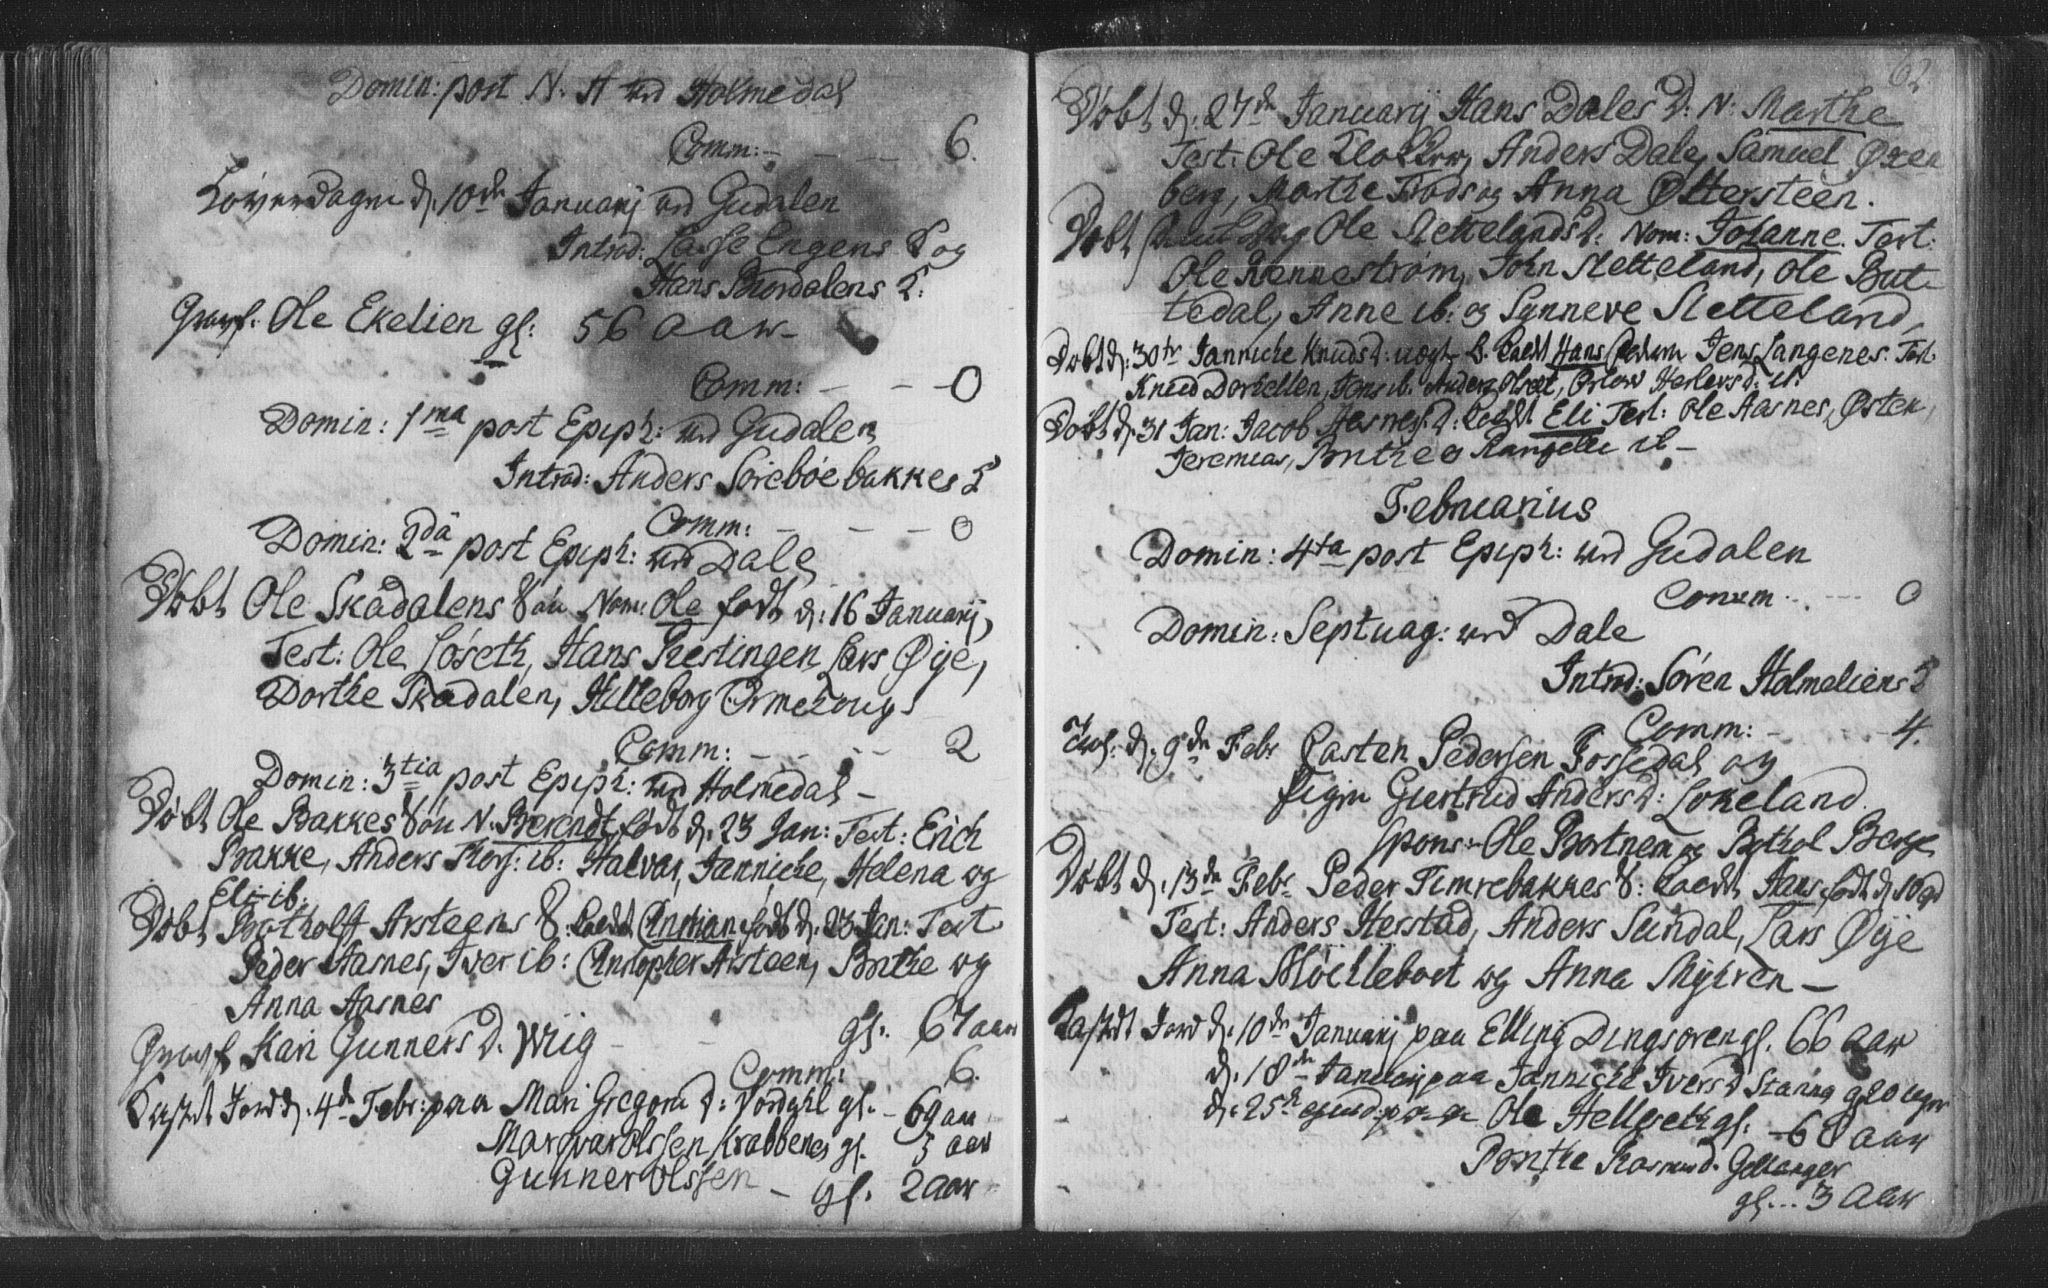 Domin: post N. A ved Holmedal
Comm: - - - 6.
Løverdagen d. 10de Januarij ved Gudalen
Introd: Lasse Engens Q og
Hans Biordalens Q:
Gravf. Ole Ekelien gl: 56 aar
Comm: - - - 0
Domin: 1ma post Epiph: ved Gudalen
Introd: Anders Sörebøe bakkes Q
Comm: - - - 0
Domin: 2da post Epiph: ved Dale
Døbt Ole Skadalens Søn Nom: Ole født d: 16 Januarij,
Test: Ole Löseth, Hans Prestingen Lars Øye,
Dorthe Skadalen, Hilleborg Ormehoug
Comm: - - - 2
Domin: 3tia post Epiph: ved Holmedal -
Døbt Ole Bakkes Søn N. Berendt født d. 23 Jan: Test: Erich
Bakke, Anders ib: Halvar, Jannicke, Helena og
Eli ib.
Døbt Botholff Arsteens S: kaldt Christian født d. 23 Jan: Test
Peder Aasnes, Iver ib: Christopher Arsteen, Brithe og
Anna Aasnes
Gravf Kari Gunners D. Wiig - - gl. 67 aar
Comm: 6.
Kastet Jord d. 4de Febr: paa Mari Gregori D: gl. - 69 aar
Marqvar Olssen Krabbenes gl. 3 aar
Gunner Olssen - gl. 2 aar
62
Døbt d. 27de Januarij Hans Dales D: N: Marthe
Test: Ole Klokker, Anders Dale, Samuel Øren
berg, Marthe Frods og Anna Øttersteen.
Døbt Ole Slettelands D: Nom: Johanne. Test:
Ole Rennestrøm, John Sletteland, Ole But-
tedal, Anne ib: og Synneve Sletteland,
Døbt d. 30te Jannicke Knuds D: kaldt Hans Jens Langenes. Test
Knud Dorhellen, Jens ib. Anders
Døbt d. 31 Jan: Jacob Aasnes D: kaldt Eli Test: Ole Aasnes, Østen,
Jeremias, Brithe og Rangelle ib -
Februarius
Domin: 4ta post Epiph: ved Gudalen
Comm - - - 0
Domin: Septuag: ved Dale
Introd: Søren Holmeliens Q
Comm: - 4.
d. 9de Febr Casten Pedersen Fossedal og
Pigen Giertrud Anders D: Lokeland
spons: Ole Bortnen og Bothol Berge
Døbt d. 13de Febr Peder Timrebakkes S: kaldt Hans født d 10
Test: Anders Herstad, Anders Sundal, Lars Øye
Anna Möellebost og Anna Myhren -
Kastet Jord d. 10de Januarij paa Elling Dingsøren gl. 66 aar
d. 18de Januarij paa Jannicke Ivers D Stang gl 20 uger
d. 25de ejusd: paa Ole Hellesethgl. - 60 aar
Brithe Rasmus D. Gillanger
gl... 3 aar